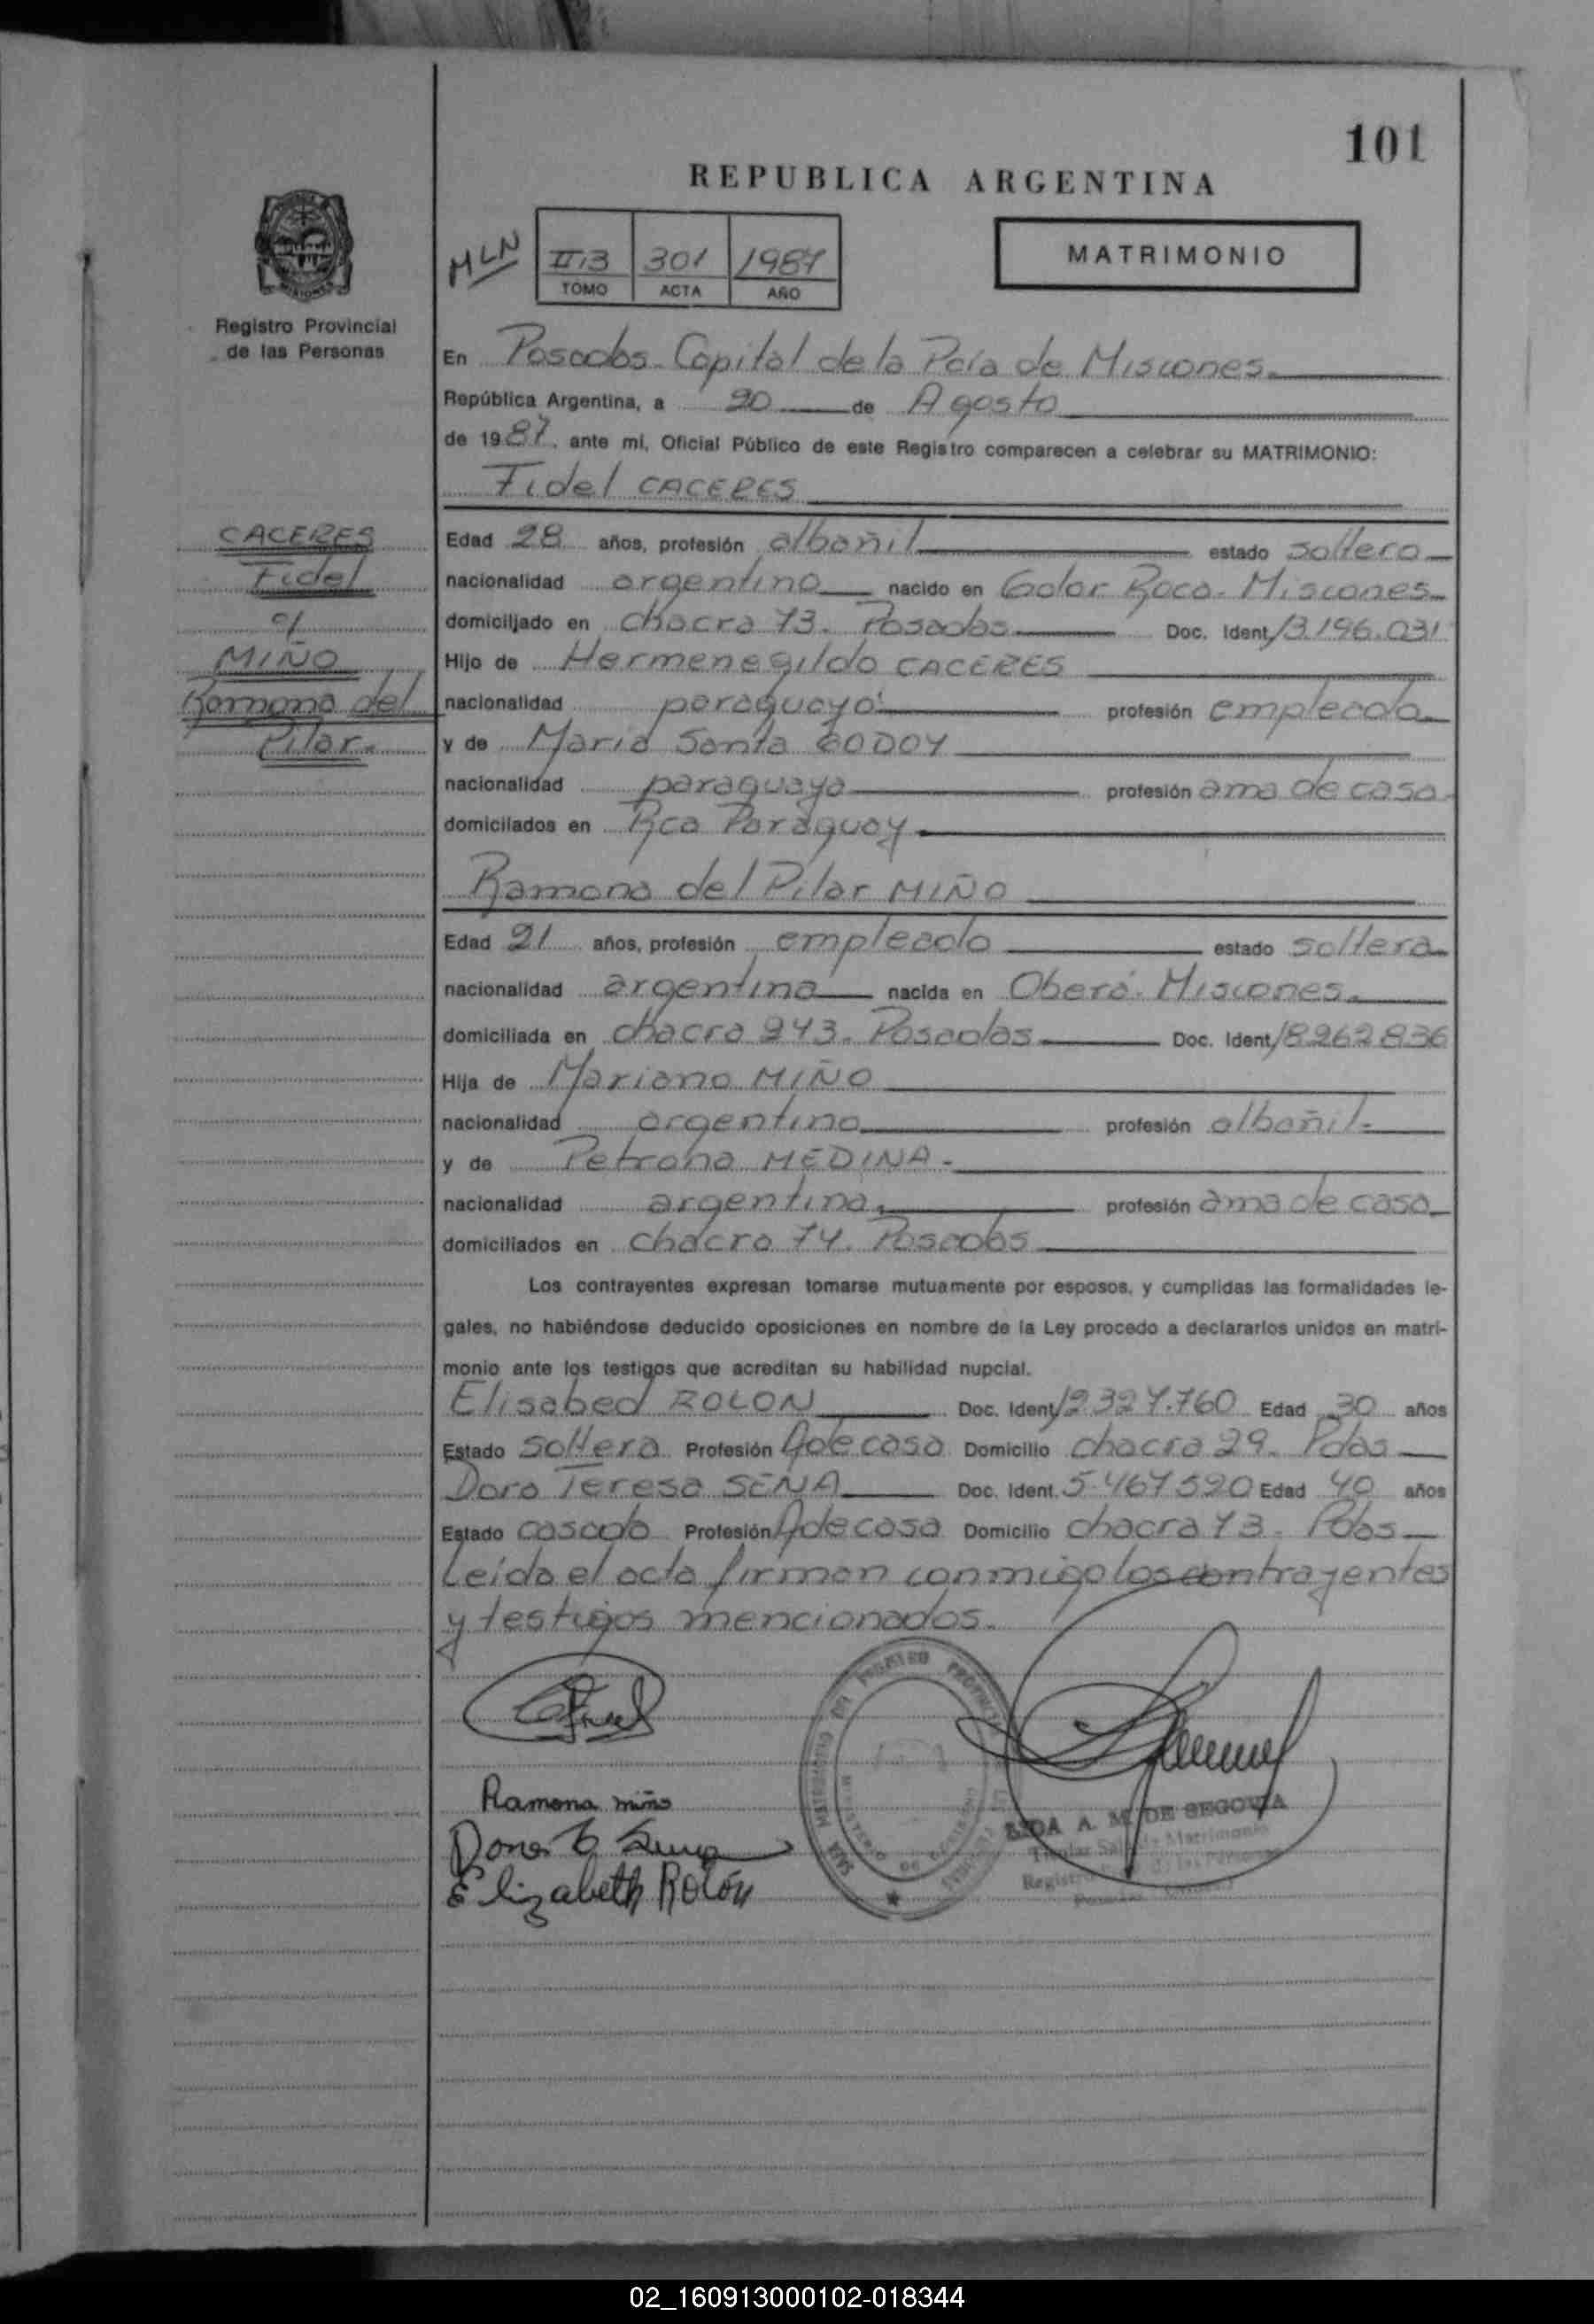 101
REPUBLICA ARGENTINA
MLN
II 13 301 1987
TOMO ACTA AÑO
MATRIMONIO
MISIONES
Registro Provincial
de las Personas
En Posadas - Capital de la Pcia de Misiones.
República Argentina, a 20 de Agosto
de 1987, ante mi, Oficial Público de este Registro comparecen a celebrar su MATRIMONIO:
Fidel CACERES
CACERES
Fidel
c/
MIÑO
Ramona del
Pilar.
Edad 28 años, profesión albañil estado soltero
nacionalidad argentino nacido en Golor Roca - Misiones
domiciliado en chacra 73. Posadas Doc. Ident. 13.196.031
Hijo de Hermenegildo CACERES
nacionalidad paraguayo profesión empleado
y de Maria Santa GODOY
nacionalidad paraguaya profesión ama de casa.
domiciliados en Rca Paraguay
Ramona del Pilar MIÑO
Edad 21 años, profesión empleada estado soltera
nacionalidad argentina nacida en Oberá - Misiones.
domiciliada en chacra 243. Posadas Doc. Ident. 18262836
Hija de Mariano MIÑO
nacionalidad argentino profesión albañil.
y de Petrona MEDINA.
nacionalidad argentina, profesión ama de casa
domiciliados en chacra 74. Posadas
Los contrayentes expresan tomarse mutuamente por esposos, y cumplidas las formalidades le-
gales, no habiéndose deducido oposiciones en nombre de la Ley procedo a declararlos unidos en matri-
monio ante los testigos que acreditan su habilidad nupcial.
Elisabed ROLON Doc. Ident. 12.327.760 Edad 30 años
Estado soltera Profesión A de casa Domicilio chacra 29. Pdas
Dora Teresa SENA Doc. Ident. 5.467520 Edad 40 años
Estado casada Profesión A de casa Domicilio chacra 73. Pdas
Leída el acta firman conmigo los contrayentes
y testigos mencionados.
Ramona miño
Elizabeth Rolón
A. M. DE SEGOVIA
Titular Sala de Matrimonio
02_160913000102-018344